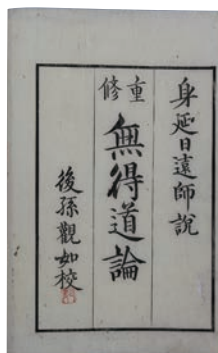 身延日遠師説
重修
無得道論
後孫觀如校